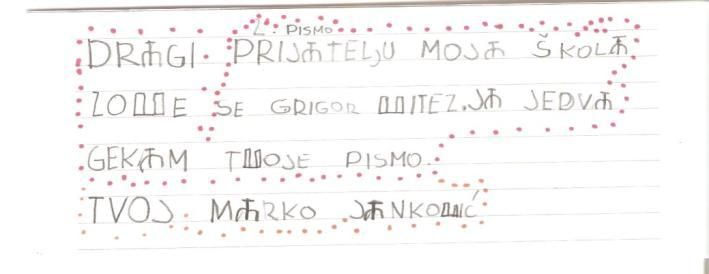 2. PISMO
DRⰀGI PRIJⰀTELJU MOJⰀ ŠKOLⰀ
ZOⰂE SE GRIGOR ⰂITEZ. JⰀ JEDVⰀ
GEKⰀM TⰂOJE PISMO.
TVOJ MⰀRKO JⰀNKOⰂIĆ